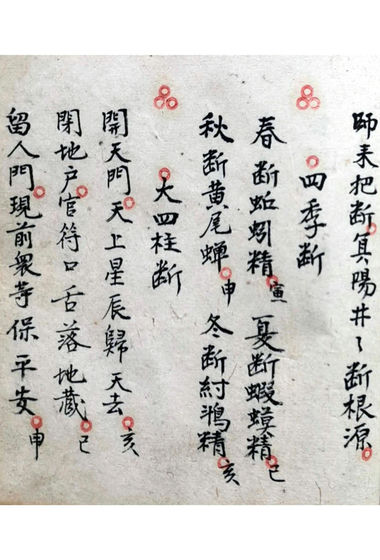 師來把斷冥陽井〻斷根源
四季斷
春斷蚯蚓精寅夏斷蝦蟆精巳
秋斷黄尾蟬申冬斷紂鴻精亥
大四柱斷
開天門天上星辰歸天去亥
閉地户官符口舌落地藏巳
留人門現前衆等保平安申